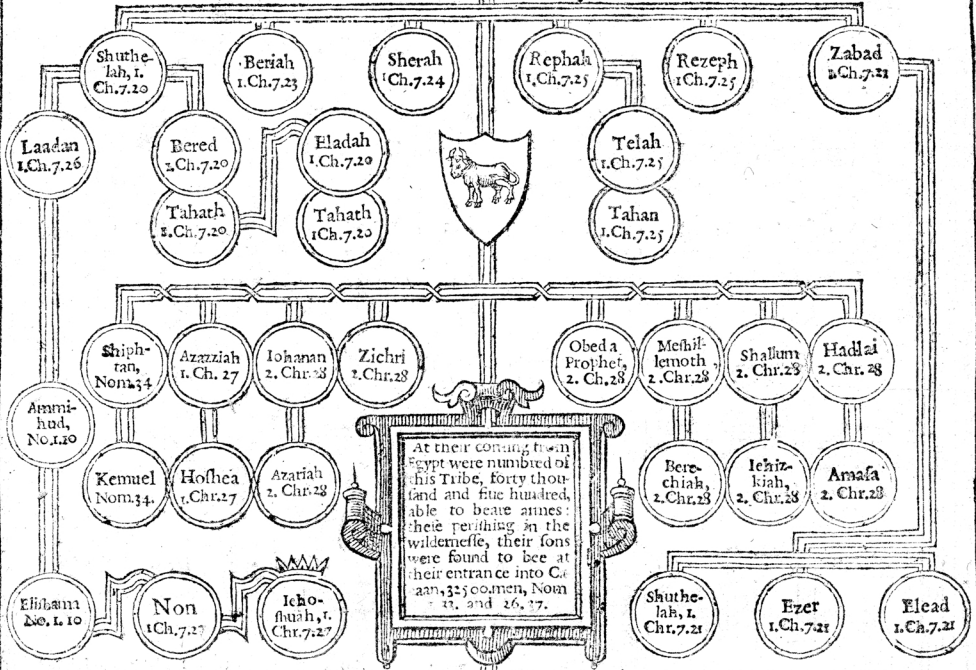 Shuthe-
lah, 1.
Ch.7.20
Beriah
1.Ch.7.23
Sherah
1Ch.7.24
Rephah
1.Ch.7.25
Rezeph
1Ch.7.25
Zabad
1.Ch.7.21
Laadan
1.Ch.7.26
Bered
1.Ch.7.20
Eladah
1.Ch.7.20
Telah
1.Ch.7.25
Tahath
1.Ch.7.20
Tahath
1Ch.7.20
Tahan
1.Ch.7.25
Shiph-
tan,
Nom.34
Azazziah
1. Ch. 27
Iohanan
2. Chr.28
Zichri
2.Chr.28
Obed a
Prophet,
2. Ch.28
Meſhil-
lemoth,
2.Chr.28
Shallum
2. Chr.28
Hadlai
2. Chr.28
Ammi-
hud,
No.1.10
Kemuel
Nom.34.
Hoſhea
1.Chr.27
Azariah
2. Chr.28
Bere-
chiah,
2.Chr.28
Iehiz-
kiah,
2.Chr.28
Amaſa
2. Chr.28
At their coming from
Egypt were numbred of
this Tribe, forty thou-
ſand and fiue hundred,
able to beare armes:
theſe periſhing in the
wilderneſſe, their ſons
were found to bee at
their entrance into Ca
aan,32500.men, Nom
and 26.37.
Eliſhama
No. 1. 10
Non
1Ch.7.27
Ieho-
ſhuah,1.
Chr.7.27
Shuthe-
lah, 1.
Chr.7.21
Ezer
1.Ch.7.21
Elead
1.Ch.7.21